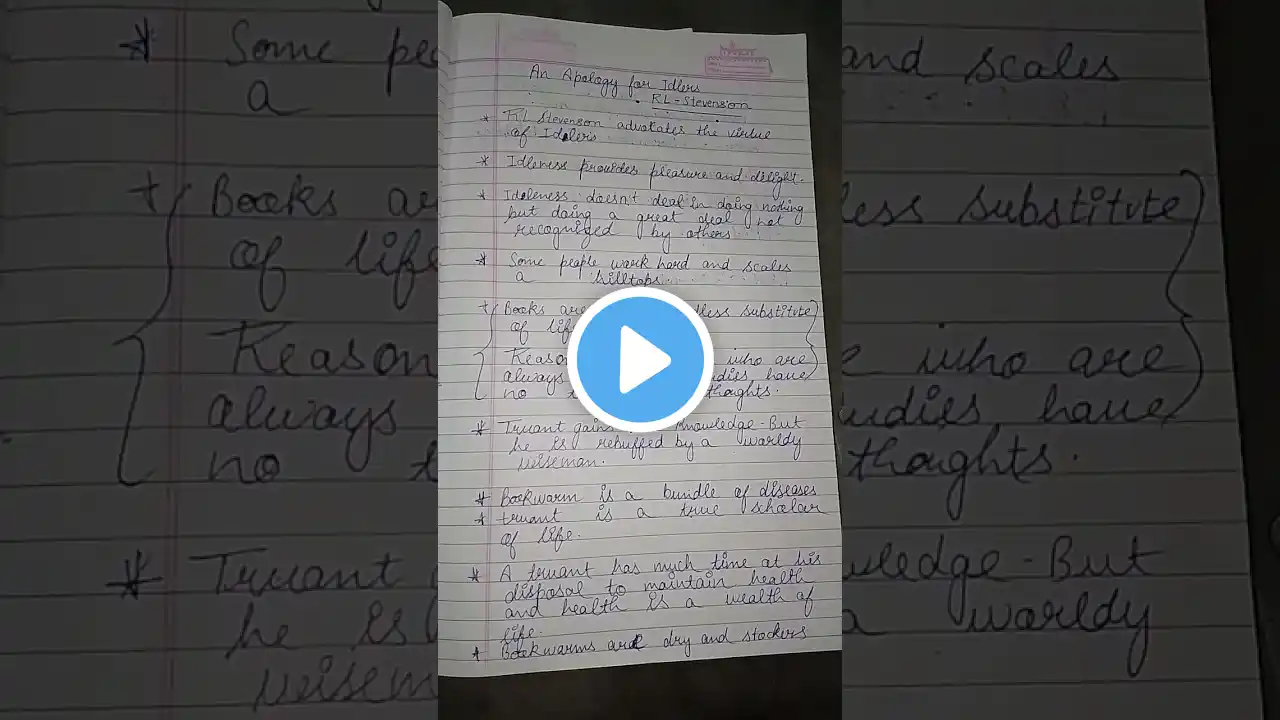 An Apology for Idlers
RL-Stevension
* RL Stevenson advocates the virtue
of Idalers
* Idleness provides pleasure and delight.
* Idoleness doesn't deal in doing nothing
but doing a great deal not
recognized by others
* Some people work hard and scales
a hilltops.
+ Books are less substitute
of life
Reason who are
always have
no thoghts.
* Truant gains knowledge. But
he is rebuffed by a warldy
wiseman.
* Bookwarm is a bundle of diseases
* truant is a true shcolar
of life.
* A truant has much time at his
disposal to maintain health
and health is a wealth of
life.
* Bookwarms are dry and stockers